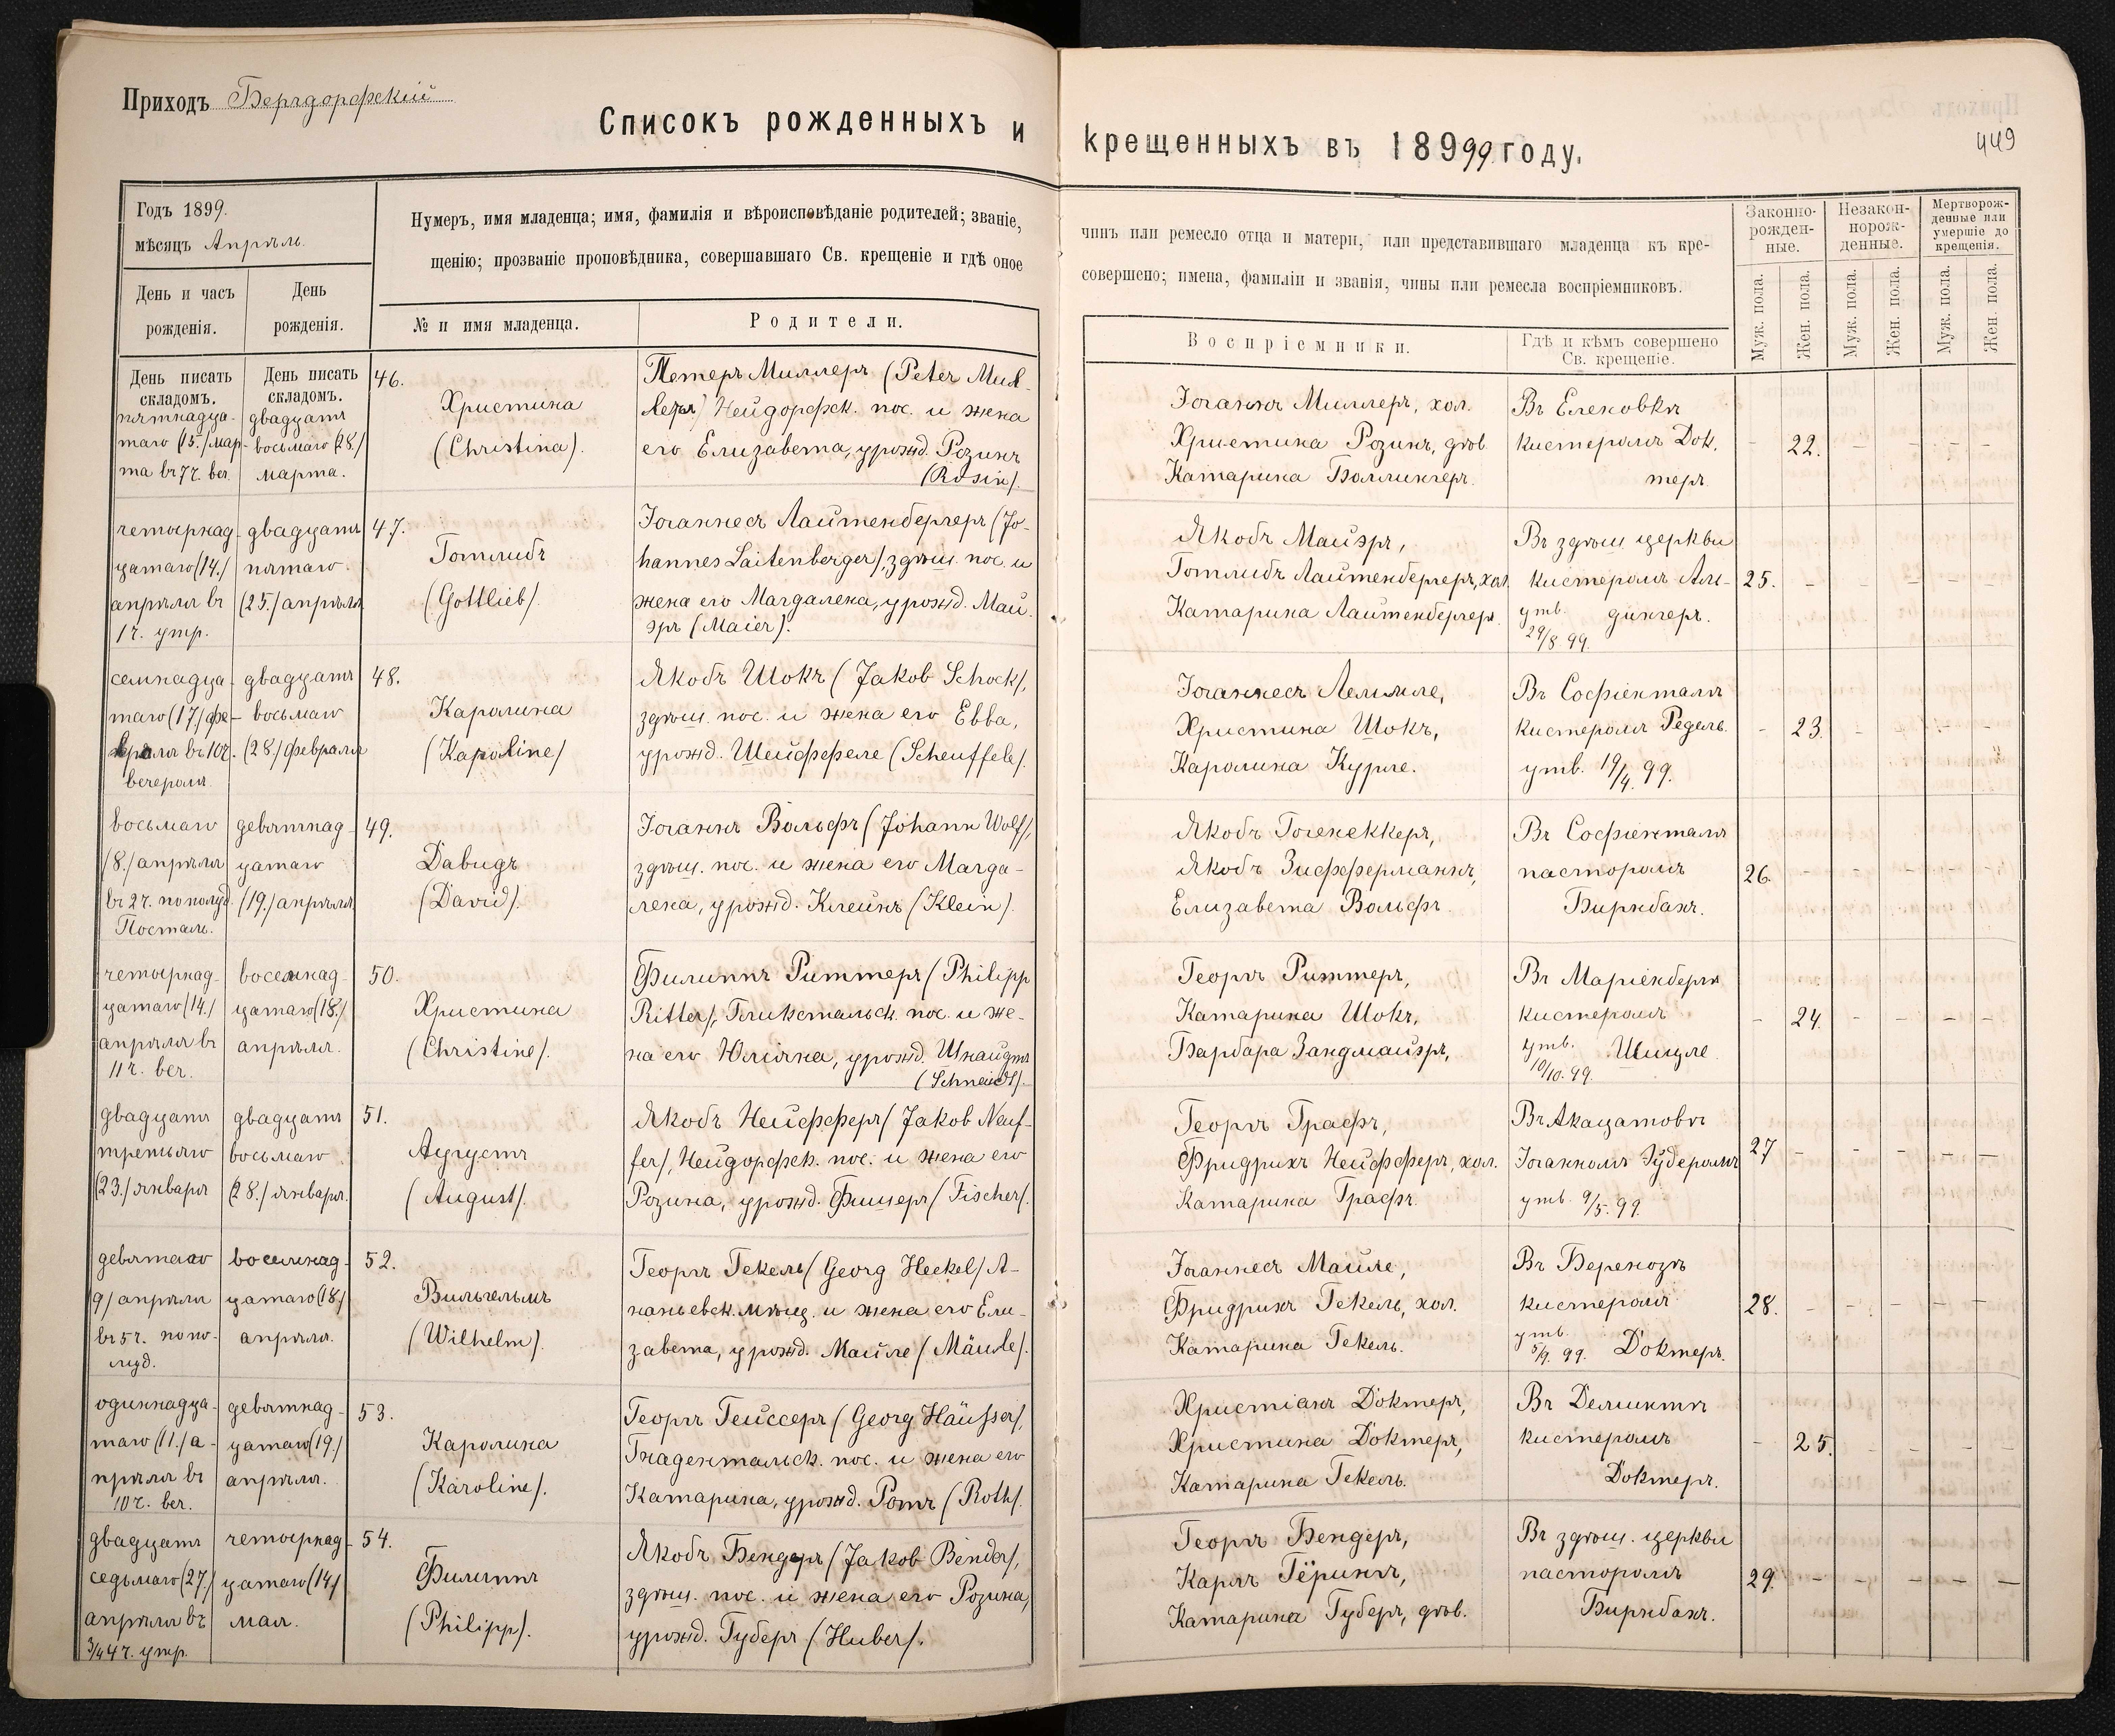 Приходъ Бергдорфскій
Списокъ рожденныхъ и крещенныхъ въ 1899 году.
449
Годъ 1899.
мѣсяцъ Апрѣль.
Нумеръ, имя младенца; имя, фамилія и вѣроисповѣданіе родителей; званіе,
чинъ или ремесло отца и матери, или представившаго младенца къ кре-
щенію; прозваніе проповѣдника, совершавшаго Св. крещеніе и гдѣ оное
совершено; имена, фамиліи и званія, чины или ремесла воспріемниковъ.
День и часъ
рожденія.
День
рожденія.
№ и имя младенца.
Родители.
Воспріемники.
Гдѣ и кѣмъ совершено
Св. крещеніе.
Законно-
рожден-
ные.
Незакон-
норож-
денные.
Мертворож-
денные или
умершіе до
крещенія.
Муж. пола.
Жен. пола.
Муж. пола.
Жен. пола.
Муж. пола.
Жен. пола.
День писать
складомъ.
День писать
складомъ.
пятнадца-
таго (15.) мар-
та въ 7 ч. веч.
двадцать
восьмаго (28.)
марта.
46.
Христина
(Christina).
Петеръ Миллеръ (Peter Mül-
ler) Нейдорфск. пос. и жена
его Елизавета, урожд. Розинъ
(Rosin).
Іоганнъ Миллеръ, хол.
Христина Розинъ, дѣв.
Катарина Боллингеръ.
Въ Еленовкѣ
кистеромъ Док-
теръ
- 22. - - - -
четырнад-
цатаго (14.)
апрѣля въ
1 ч. утр.
двадцать
пятаго
(25.) апрѣля
47.
Готлибъ
(Gottlieb).
Іоганнесъ Лаитенбергеръ (Jo-
hannes Laitenberger), здѣш. пос. и
жена его Магдалена, урожд. Май-
эръ (Maier).
Якобъ Майэръ,
Готлибъ Лаитенбергеръ, хол.
Катарина Лаитенбергеръ.
Въ здѣш. церкви
кистеромъ Аль-
утв. дингеръ.
29/8 99.
25. - - - - -
семнадца-
таго (17.) фе-
враля въ 10 ч.
вечеромъ
двадцать
восьмаго
(28.) февраля
48.
Каролина
(Karoline)
Якобъ Шокъ (Jakob Schock),
здѣш. пос. и жена его Евва,
урожд. Шейффеле (Scheuffele).
Іоганнесъ Леммле,
Христина Шокъ,
Каролина Курле.
Въ Софіенталѣ
кистеромъ Редель.
утв. 19/4. 99.
- 23. - - - -
восьмаго
(8.) апрѣля
въ 2 ч. пополуд.
Посталь.
девятнад-
цатаго
(19.) апрѣля
49.
Давидъ
(David).
Іоганнъ Вольфъ (Johann Wolf),
здѣш. пос. и жена его Магда-
лена, урожд. Клейнъ (Klein).
Якобъ Гогенеккеръ,
Якобъ Зифферманнъ,
Елизавета Вольфъ.
Въ Софіенталѣ
пасторомъ
Бирнбахъ.
26. - - - - -
четырнад-
цатаго (14.)
апрѣля въ
11 ч. веч.
восемнад-
цатаго (18.)
апрѣля.
50.
Христина
(Christine).
Филиппъ Риттеръ (Philipp
Ritter), Гликстальск. пос. и же-
на его Юліана, урожд. Шнайдтъ
(Schneidt).
Георгъ Риттеръ,
Катарина Шокъ,
Барбара Зандмайэръ,
Въ Маріенбергѣ
кистеромъ
утв. Шицле
10/10. 99.
- 24. - - - -
двадцать
третьяго
(23.) января
двадцать
восьмаго
(28.) января.
51.
Аугустъ
(August).
Якобъ Нейфферъ (Jakob Neuf-
fer), Нейдорфск. пос. и жена его
Розина, урожд. Фишеръ (Fischer).
Георгъ Графъ,
Фридрихъ Нейфферъ, хол.
Катарина Графъ.
Въ Акацатовѣ
Іоганномъ Зудеромъ
утв. 9/5. 99.
27 - - - - -
девятаго
(9) апрѣля
въ 5 ч. попо-
луд.
восемнад-
цатаго (18.)
апрѣля.
52.
Вильгельмъ
(Wilhelm).
Георгъ Гекель (Georg Heckel) А-
наньевск. мѣщ. и жена его Ели-
завета, урожд. Майле (Mäule).
Іоганнесъ Майле,
Фридрихъ Гекель, хол.
Катарина Гекель.
Въ Березозѣ
кистеромъ
утв.
5/9. 99. Доктеръ.
28. - - - - -
одиннадца-
таго (11.) а-
прѣля въ
10 ч. веч.
девятнад-
цатаго (19.)
апрѣля.
53.
Каролина
(Karoline).
Георгъ Гейссеръ (Georg Häusser),
Гнадентальск. пос. и жена его
Катарина, урожд. Ротъ (Roth).
Христіанъ Доктеръ,
Христина Доктеръ,
Катарина Гекель.
Въ Делинктѣ
кистеромъ
Доктеръ.
- 25. - - - -
двадцать
седьмаго (27.)
апрѣля въ
3/4 4 ч. утр.
четырнад-
цатаго (14.)
мая.
54.
Филиппъ
(Philipp).
Якобъ Бендеръ (Jakob Bender),
здѣш. пос. и жена его Розина,
урожд. Губеръ (Huber).
Георгъ Бендеръ,
Карлъ Гёрингъ,
Катарина Губеръ, дѣв.
Въ здѣш. церкви
пасторомъ
Бирнбахъ.
29. - - - - -